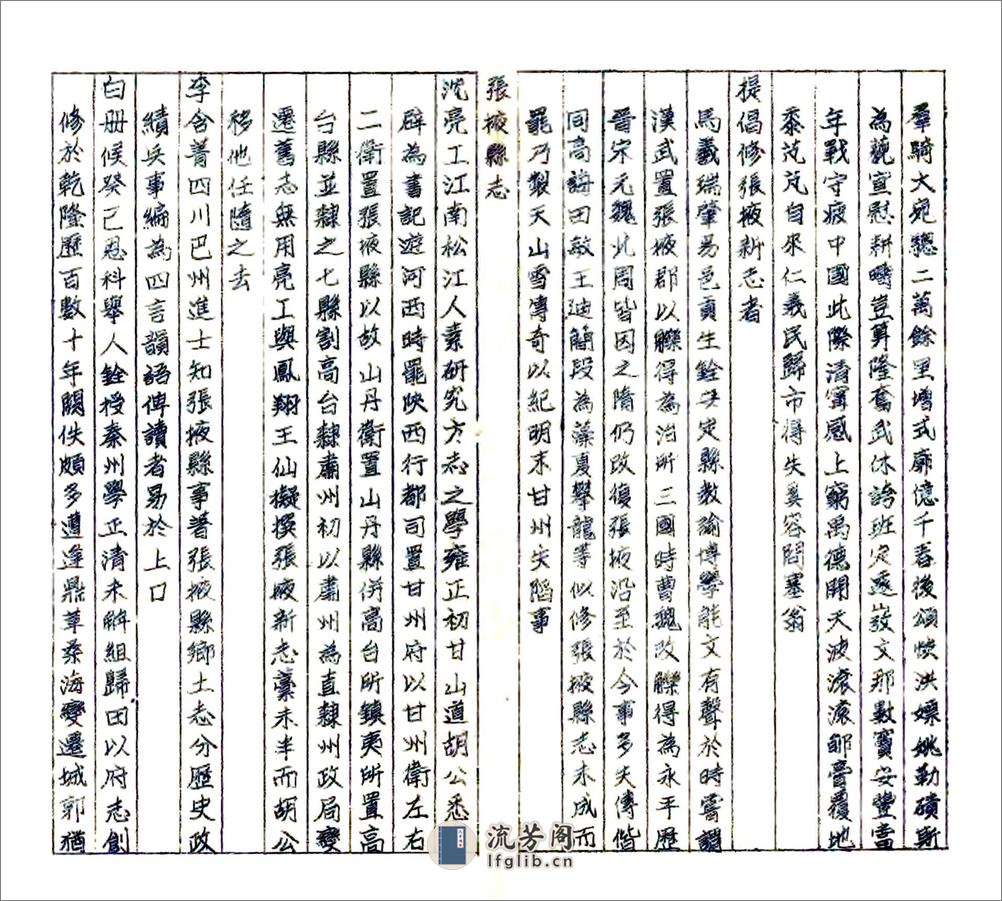 羣騎大宛驄二萬餘里增式廓億千春後頌悛洪嫖姚勒磧斯
為藐宣慰耕疇豈算隆奮武休誇班定遠敚文那數竇安豐當
年戰守疲中國此際清寧感上窮禹德開天波滾滾郇膏覆地
黍芃芃自來仁義民歸市得失奚容問塞翁
提倡修張掖新志者
馬羲瑞肇易邑貢生銓安定縣教諭博學能文有聲於時嘗謂
漢武置張掖郡以觻得為治所三國時曹魏改觻得為永平歷
晉宋元魏北周皆因之隋仍改復張掖沿至於今事多失傳偕
同高誨田敏王迪簡段為藻夏攀龍等似修張掖縣志未成而
罷乃製天山雪傳奇以紀明末甘州失陷事
張掖縣志
沈亮工江南松江人素研究方志之學雍正初甘山道胡公悉
辟為書記遊河西時罷陝西行都司置甘州府以甘州衛左右
二衛置張掖縣以故山丹衛置山丹縣併高台所鎮夷所置高
台縣並隸之七縣割高台隸肅州初以肅州為直隸州政局變
遷舊志無用亮工與鳳翔王仙擬撰張掖新志藁未半而胡公
移他任隨之去
李含菁四川巴州進士知張掖縣事著張掖縣鄉土志分歷史政
績兵事編為四言韻語俾讀者易於上口
白册候癸已恩科舉人銓授秦州學正清末解組歸田以府志創
修於乾隆歷百數十年闕佚頗多遭逢鼎革桑海變遷城郭猶
流芳阁
lfglib.cn